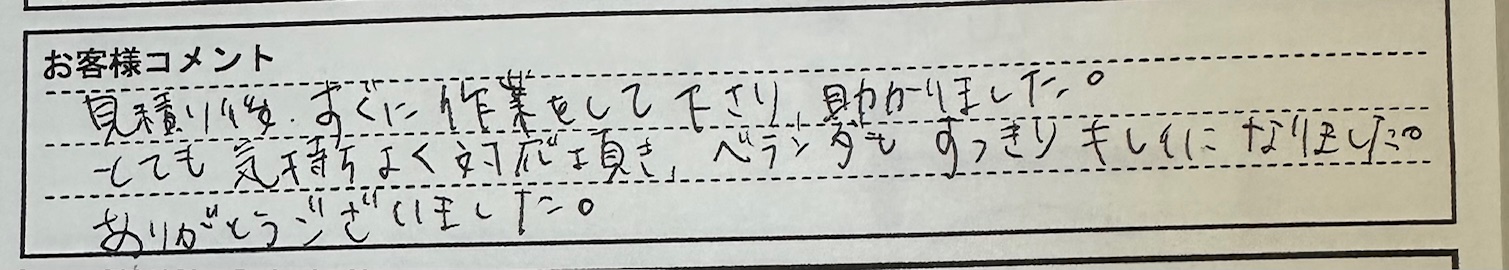 お客様コメント
見積り後、すぐに作業をして下さり、助かりました。
とても気持ちよく対応頂き、ベランダもすっきりキレイになりました。
ありがとうございました。